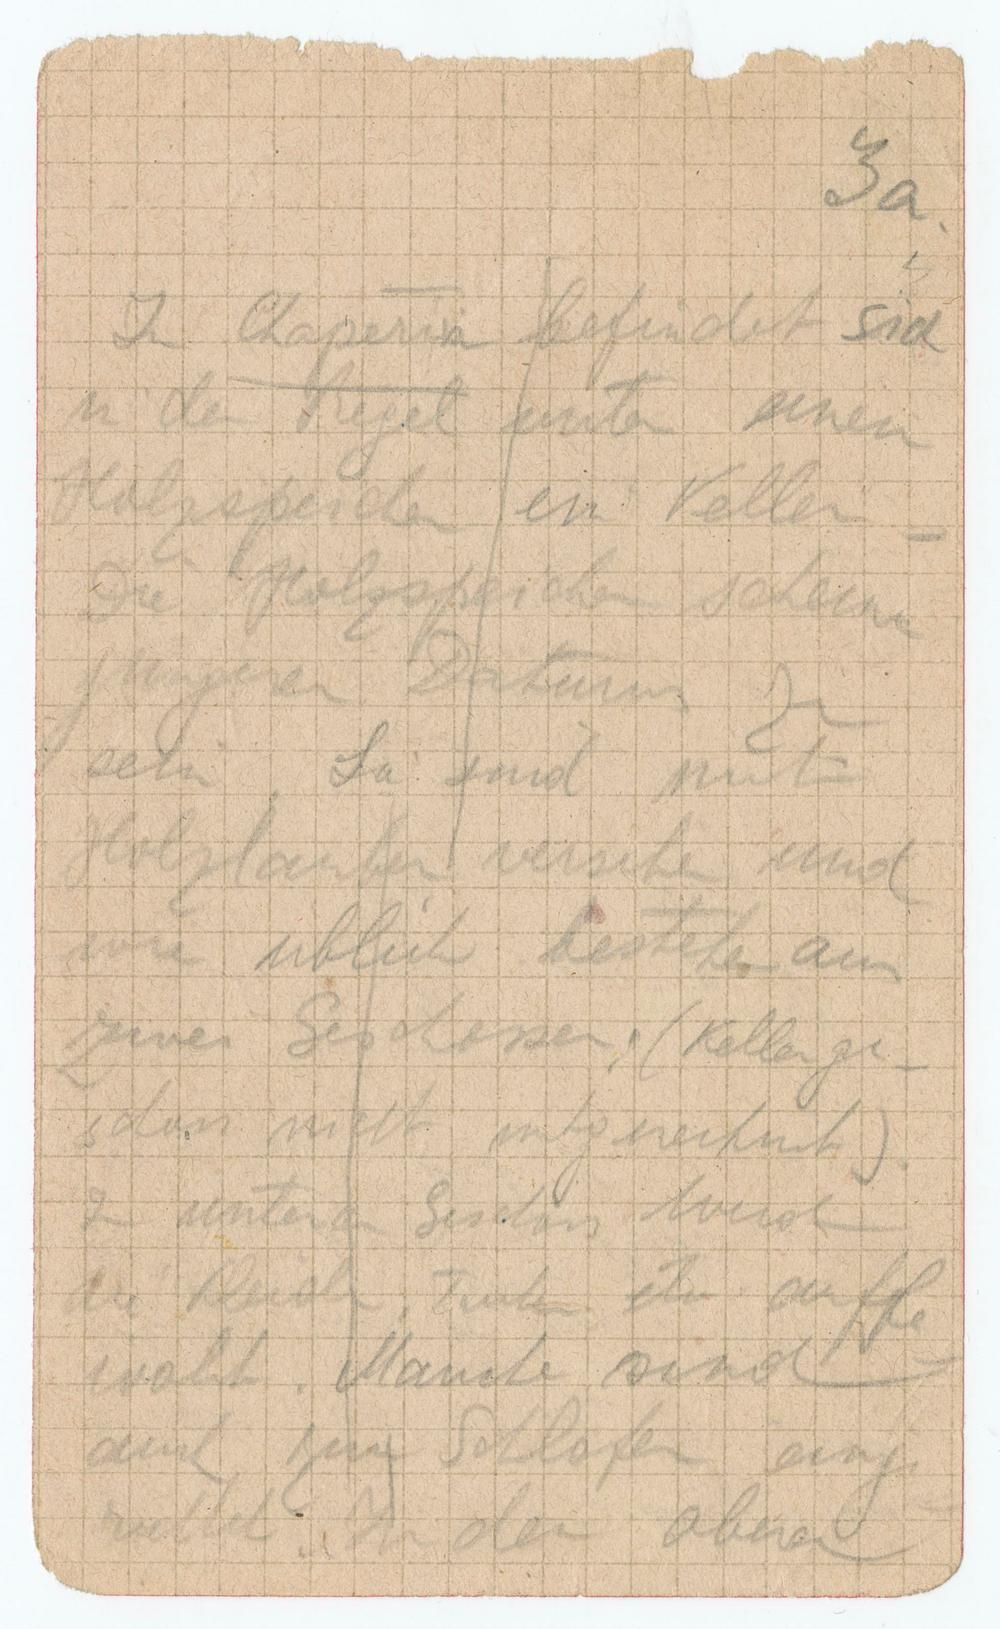 3a.
In Chaperia befindet sich
in der Regel unter einem
Holzspeicher ein Keller –
Die Holzspeicher scheinen
jüngeren Datums zu
sein. Sie sind mit
Holzlauben versehen und
wie üblich bestehen aus
zwei Geschossen. (Kellerge-
schoss nicht mitgerechnet).
Im unteren Geschoss wird
die Kleider, Truhen etc aufbe
wahrt. Manche sind
auch zum Schlafen einge
richtet. In der oberen